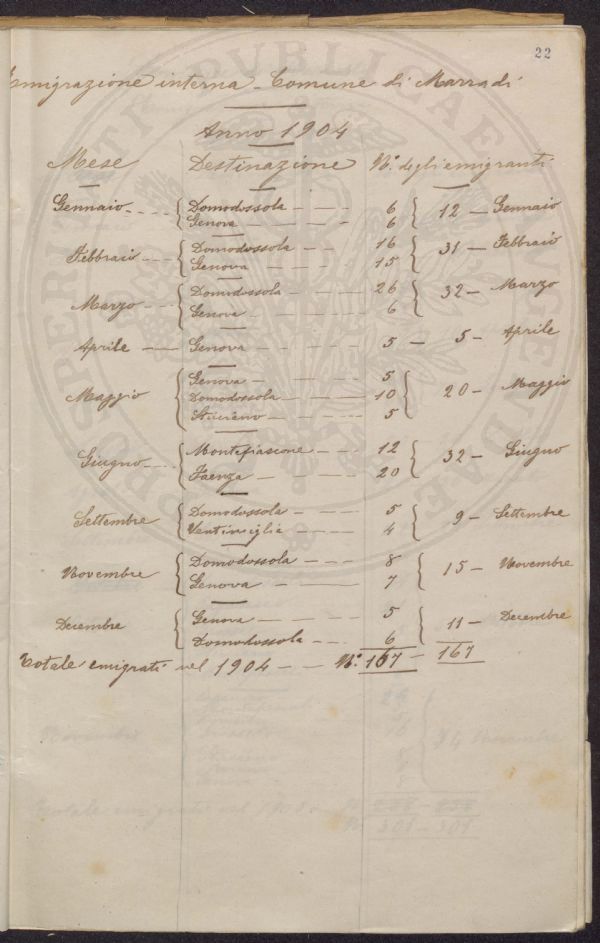 22
Emigrazione interna - Comune di Marradi
Anno 1904
Mese Destinazione N.° degli emigranti
Gennaio Domodossola 6 12 - Gennaio
Genova 6
Febbraio Domodossola 16 31 - Febbraio
Genova 15
Marzo Domodossola 26 32 - Marzo
Genova 6
Aprile Genova 5 - 5 - Aprile
Maggio Genova 5 20 - Maggio
Domodossola 10
5
Giugno Montefiascone 12 32 - Giugno
Faenza 20
Settembre Domodossola 5 9 - Settembre
Ventimiglia 4
Novembre Domodossola 8 15 - Novembre
Genova 7
Decembre Genova 5 11 - Decembre
Domodossola 6
Totale emigrati nel 1904 - - N.° 167 - 167